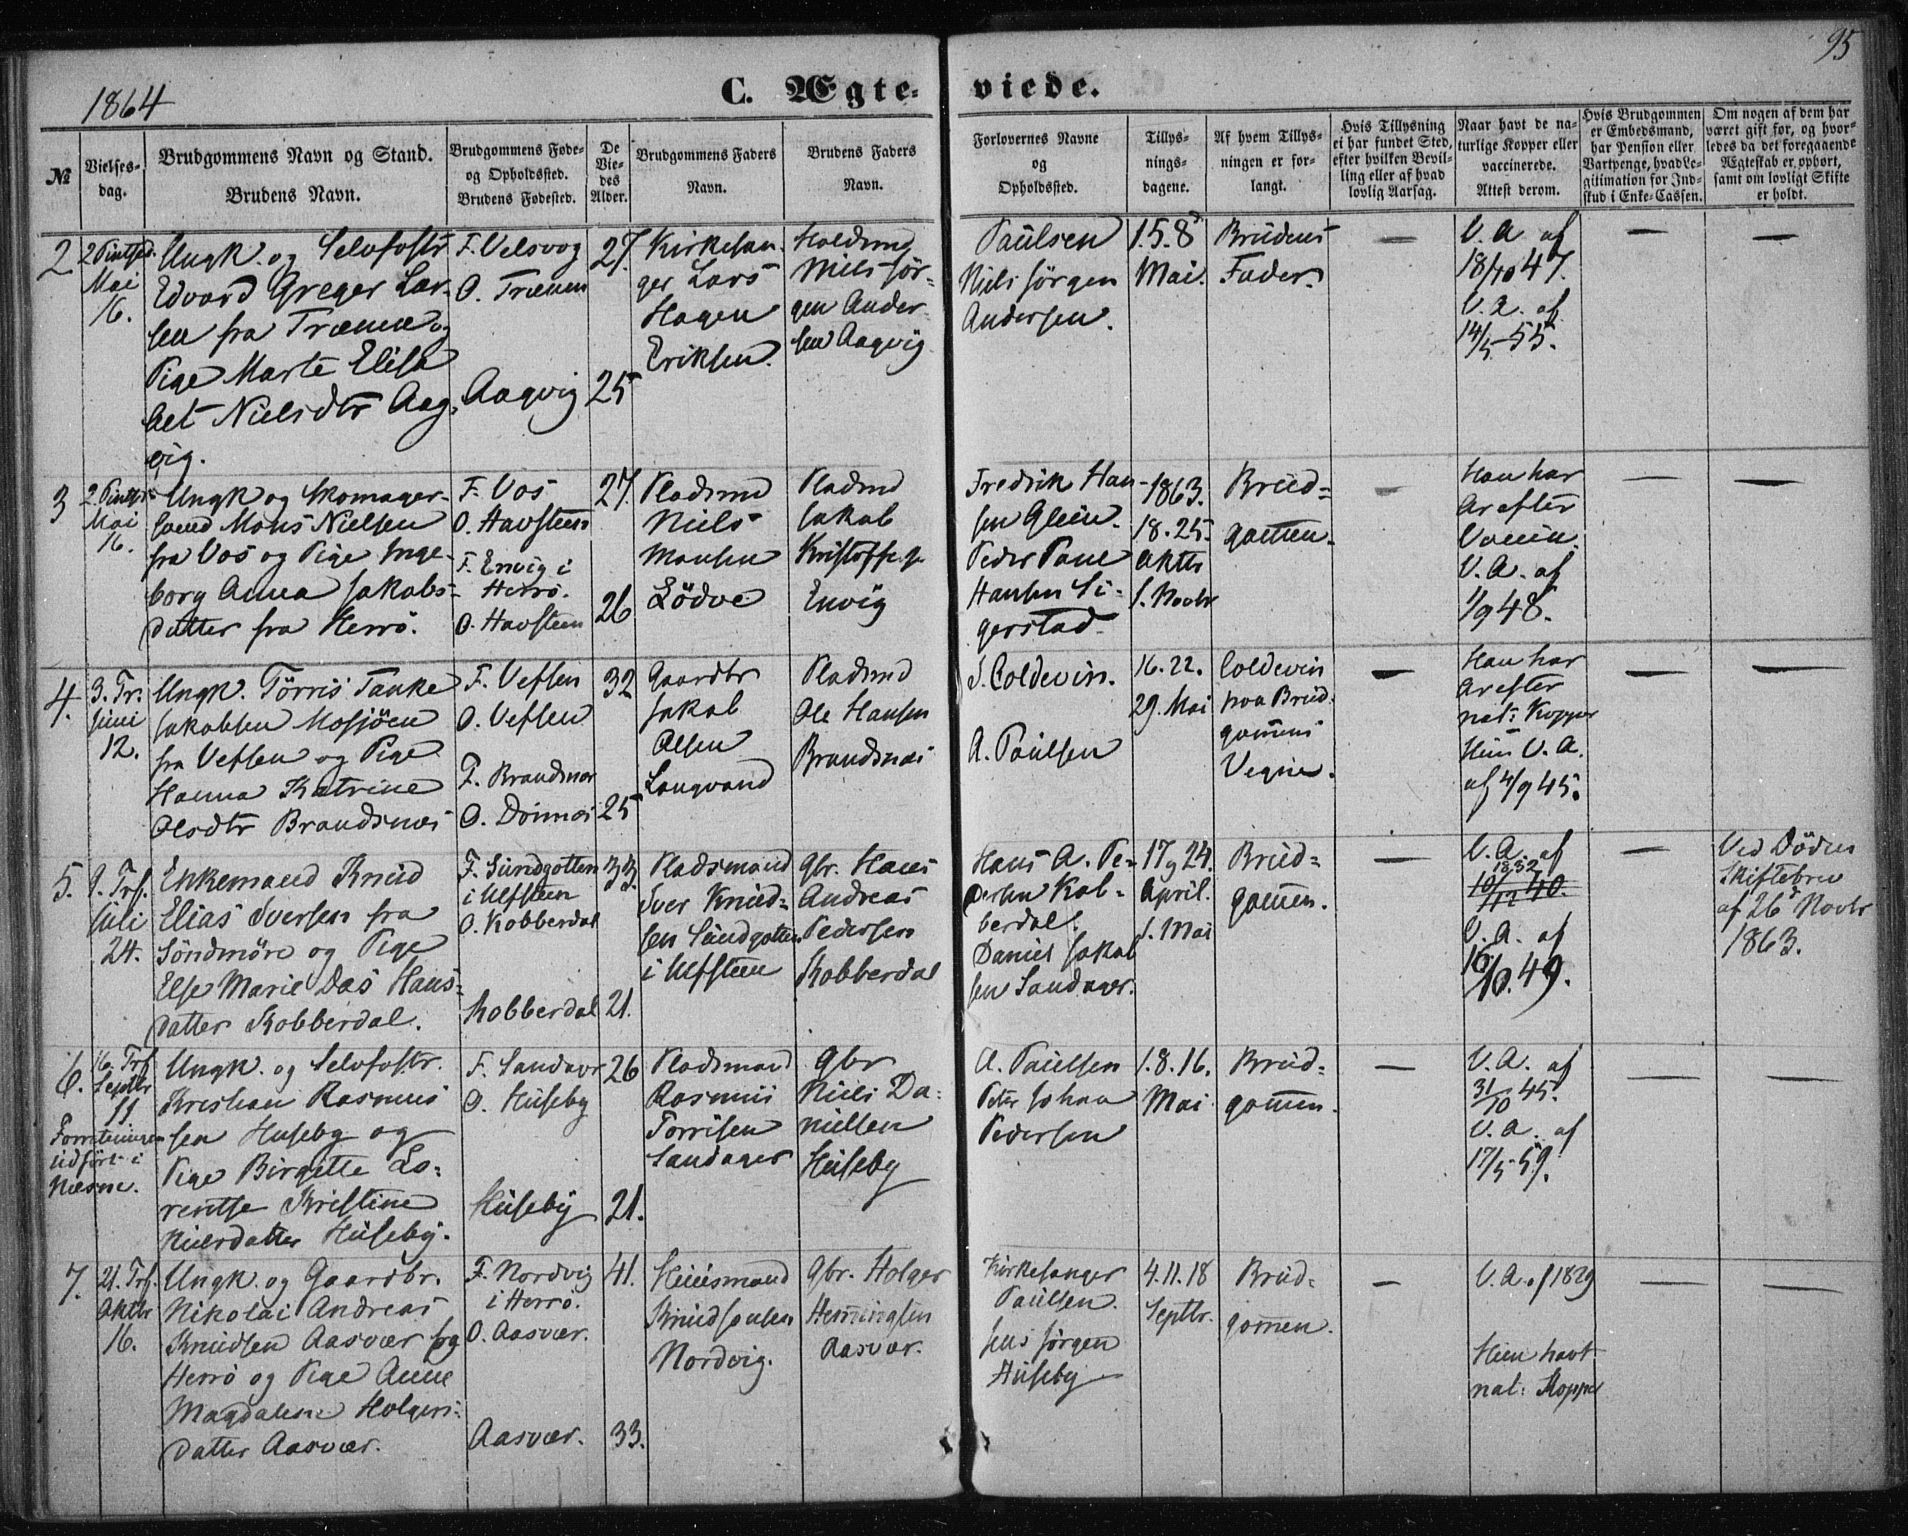 95
1864
C. Ægte-viede.
№
Vielses-
dag.
Brudgommens Navn og Stand.
Brudens Navn.
Brudgommens Føde-
og Opholdssted.
Brudens Fødested.
De
Vie-
des
Alder.
Brudgommens Faders
Navn.
Brudens Faders
Navn.
Forlovernes Navne
og
Opholdssted.
Tillys-
nings-
dagene.
Af hvem Tillys-
ningen er for-
langt.
Hvis Tillysning
ei har fundet Sted,
efter hvilken Bevil-
ling eller af hvad
lovlig Aarsag.
Naar havt de na-
turlige Kopper eller
vaccinerede.
Attest derom.
Hvis Brudgommen
er Embedsmand,
har Pension eller
Vartpenge, hvad Le-
gitimation for Ind-
skud i Enke-Cassen.
Om nogen af dem har
været gift før, og hvor-
ledes da det foregaaende
Ægteskab er ophørt,
samt om lovligt Skifte
er holdt.
2
2 Pintsed.
Mai
16.
Ungk. og Selvfostr
Edvard Greger Lar-
sen fra Trænen og
Pige Marte Elisa
bet Nielsdtr Aag-
vig.
F. Velsvog
O. Trænen
Aagvig
27.
25
Kirkesan-
ger Lars
Hagen
Eriksen.
Holdsmd
Niels Jör-
gen Ander-
sen Aagvig
Paulsen
Niels Jörgen
Andersen.
1.5.8
Mai.
Brudens
Fader.
—
V. A af
18/10 47.
V. A. af
14/5 55.
—
—
3
2 Pintsd.
Mai
16.
Ungk og Skomager-
svend Mons Nielsen
fra Vos og Pige Inge-
borg Anna Jakobs-
datter fra Herrö.
F. Vos
O. Havsteen
F. Envig i
Herrö.
O. Havsteen
27.
26
Pladsmd
Niels
Monsen
Lödve
Pladsmd
Jakob
Kristoffersen
Envig
Fredrik Han-
sen Glein.
Peder Pave
Hansen Si-
gerstad.
1863.
18. 25.
Oktbr
1. Novbr
Brud-
gommen.
—
Han har
Ar efter
Vaccin.
V. A. af
1/9 48.
—
—
4.
3. Tr.
Juni
12.
Ungk. Törris Tanke
Jakobsen Mosjöen
fra Vefsen og Pige
Hanna Katrine
Olsdtr Brandsnæs
F. Vefsen
O. Vefsen
F. Brandsnæs
O. Dönnæs
32
25
Gaardbr
Jakob
Olsen
Langvand
Pladsmd
Ole Hansen
Brandsnæs
J. Coldevin.
A. Paulsen
16. 22.
29. Mai
Coldevin
paa Brud-
gommens
Vegne.
—
Han har
Ar efter
nat: Kopper
Hun V. A.
af 4/9 45.
—
—
5.
9. Trf.
Juli
24.
Enkemand Knud
Elias Iversen fra
Söndmöre og Pige
Else Marie Das Hans-
datter Kobberdal.
F. Sundgotten
i Ulfsteen
O. Kobberdal
Kobberdal
33.
21.
Pladsmand
Iver Knud-
sen Sundgotten
i Ulfsteen
Gbr. Hans
Andreas
Pedersen
Kobberdal
Hans A. Pe-
dersen Kob-
berdal.
Daniel Jakob
sen Sandager.
17 og 24.
April.
1. Mai
Brud-
gommen.
—
V. A. af
1852
10/12 40.
V. A. af
16/10. 49.
—
Ved Döden
Skiftebrev
af 26 Novbr
1863.
6.
16 Trf.
Septbr
11
Forretningen
udfört i
Næsne.
Ungk. og Selvfostr.
Kristian Rasmus
sen Huseby og
Pige Birgitte Lo-
rentse Kristine
Nielsdatter Huseby.
F. Sandager
O. Huseby
Huseby
26
21.
Pladsmand
Rasmus
Torrisen
Sandager
Gbr
Niels Da-
nielsen
Huseby
A. Paulsen
Peter Johan
Pedersen
1.8.16.
Mai
Brud-
gommen.
—
V. A. af
31/10 45.
V. A. af
17/5 59.
—
—
7.
21. Trf.
Oktbr
16.
Ungk. og Gaardbr.
Nikolai Andreas
Knudsen Aasvær fra
Herrö og Pige Anne
Magdalene Holgers-
datter Aasvær.
F. Nordvig
i Herrö.
O. Aasvær.
Aasvær.
41.
33.
Huusmand
Knud Jensen
Nordvig.
Gbr. Holger
Hemmingsen
Aasvær.
Kirkesanger
Paulsen.
Jens Jörgen
Huseby
4. 11. 18
Septbr.
Brud-
gommen.
—
V. A. af 1829
Hun havt
nat: Kopper
—
—